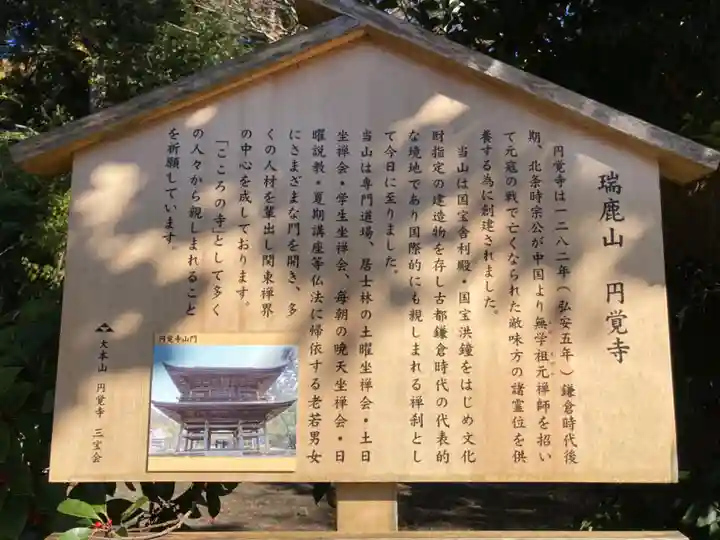 瑞鹿山 円覚寺
円覚寺は一二八二年(弘安五年)鎌倉時代後
期、北条時宗公が中国より無学祖元禅師を招い
て元寇の戦で亡くなられた敵味方の諸霊位を供
養する為に創建されました。
当山は国宝舎利殿・国宝洪鐘をはじめ文化
財指定の建造物を存し古都鎌倉時代の代表的
な境地であり国際的にも親しまれる禅刹とし
て今日に至りました。
当山は専門道場、居士林の土曜坐禅会・土日
坐禅会・学生坐禅会、毎朝の暁天坐禅会・日
曜説教・夏期講座等仏法に帰依する老若男女
にさまざまな門を開き、多
くの人材を輩出し関東禅界
の中心を成しております。
「こころの寺」として多く
の人々から親しまれること
を祈願しています。
大本山 円覚寺 三宝会
円覚寺山門